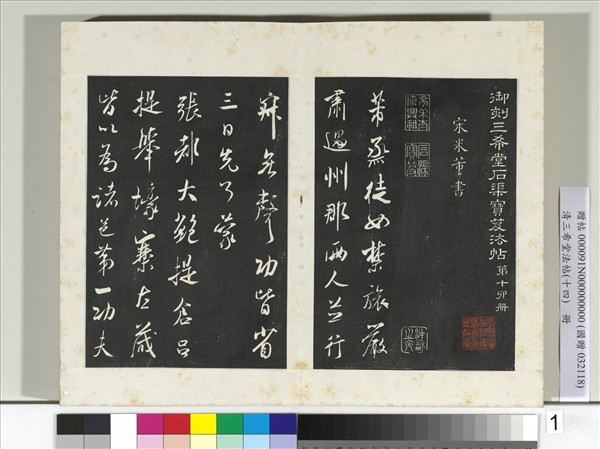 御刻三希堂石渠寶笈法帖 第十四冊
宋米芾書
芾烝徒如禁旅嚴
肅過州郡兩人並行
寂無聲功皆省
三日先了蒙
張都大鮑提倉呂
提舉壕寨左藏
皆以為諸邑第一功夫
贈帖 000091N000000000 (國贈 032118)
清三希堂法帖(十四) 冊
1